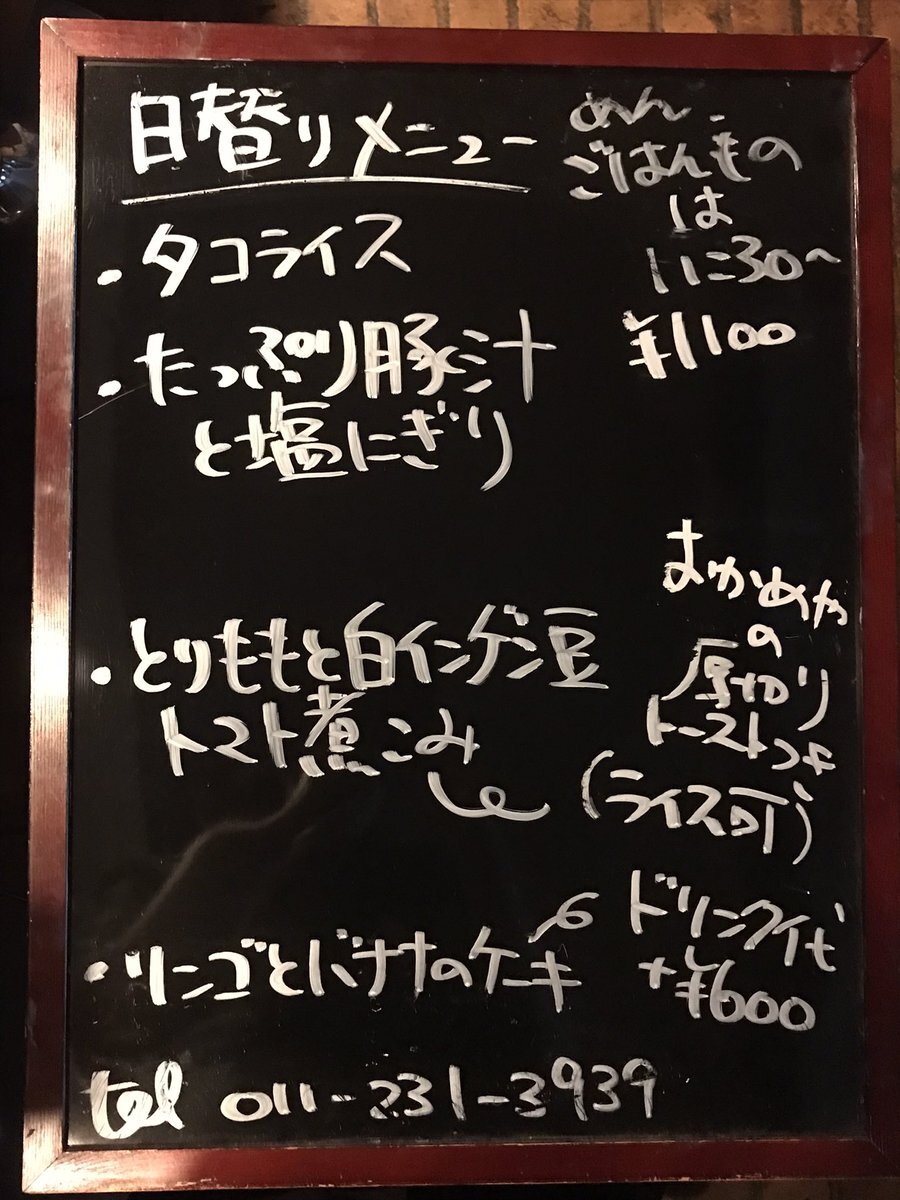 日替りメニュー
めん.
ごはんもの
は
11:30〜
・タコライス
・たっぷり豚汁
と塩にぎり
¥1100
・とりももと白インゲン豆
トマト煮こみ
まゆかめや
の
厚切り
トーストつき
(ライス可)
・リンゴとバナナのケーキ
ドリンク代
+¥600
tel 011-231-3939